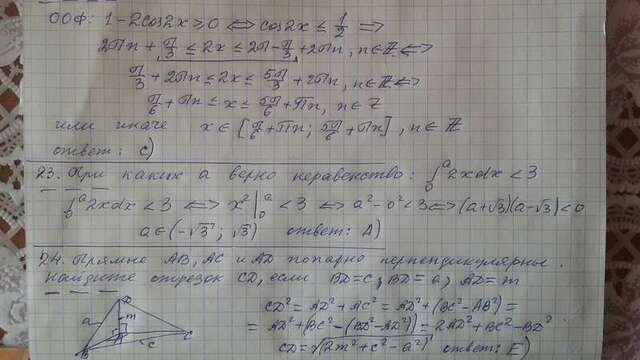 ООФ: 1-2cos2x ≥ 0 ⟺ cos2x ≤ 1/2 ⟹
2πn + π/3 ≤ 2x ≤ 2π - π/3 + 2πn, n∈Z ⟺
π/3 + 2πn ≤ 2x ≤ 5π/3 + 2πn, n∈Z ⟺
π/6 + πn ≤ x ≤ 5π/6 + πn, n∈Z
или иначе x∈[π/6 + πn; 5π/6 + πn], n∈Z
ответ: C)
23. При каких a верно неравенство: ∫₀ᵃ 2xdx < 3
∫₀ᵃ 2xdx < 3 ⟺ x²|₀ᵃ < 3 ⟺ a² - 0² < 3 ⟺ (a+√3)(a-√3) < 0
a∈(-√3; √3) ответ: A)
24. Прямые AB, AC и AD попарно перпендикулярны.
Найдите отрезок CD, если BD=c, BD=a, AD=m
CD² = AD² + AC² = AD² + (BC² - AB²) =
= AD² + BC² - (BD² - AD²) = 2AD² + BC² - BD²
CD = √(2m² + c² - a²) ответ: E)
D
a m
A
B c C